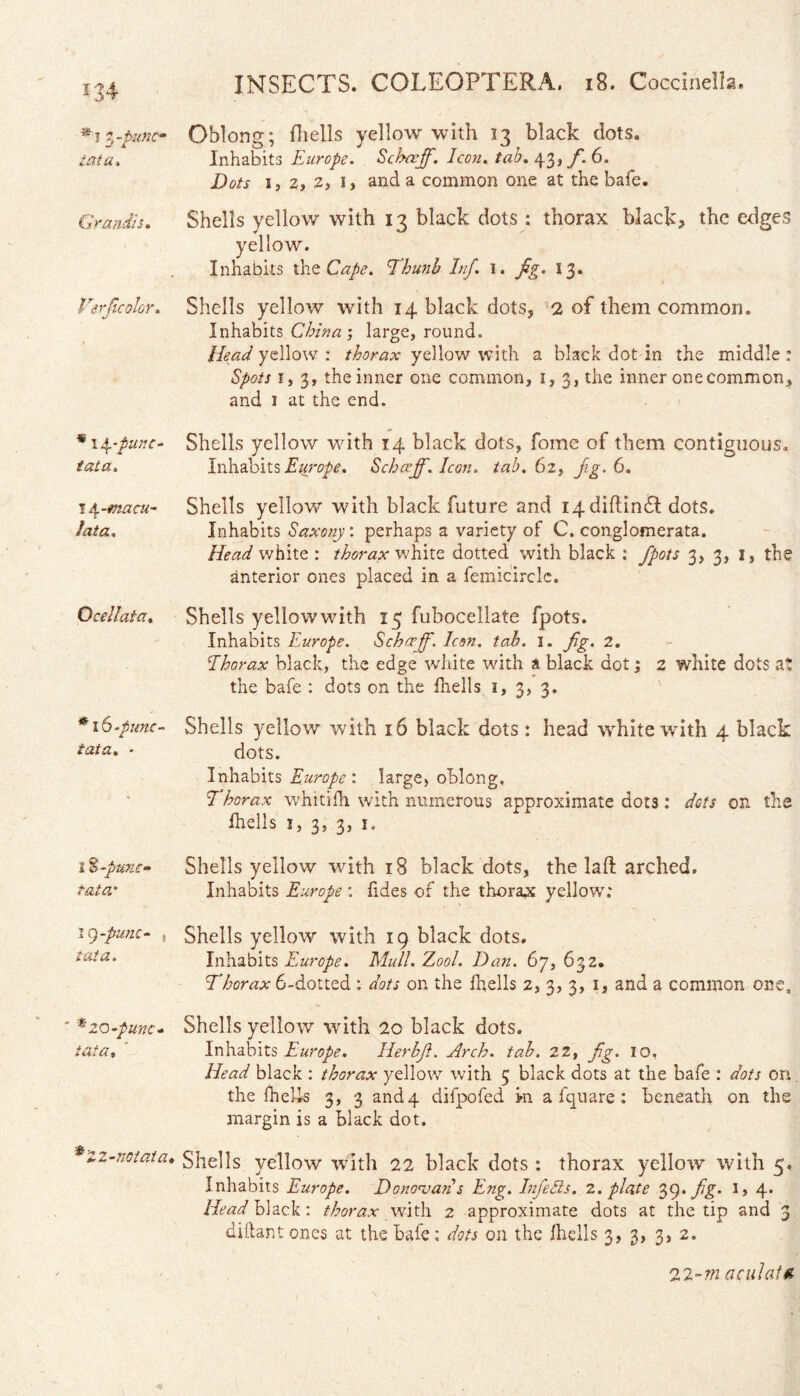 134 INSECTS. COLEOPTERA. 18. Coccinella.
*13-punc- Oblong; ſhells yellow with 13 black dots.
tata. Inhabits Europe. Schœff. Icon. tab. 43, f. 6.
Dots 1, 2, 2, 1, and a common one at the baſe.
Grandis. Shells yellow with 13 black dots : thorax black, the edges
yellow.
Inhabits the Cape. Thunb Inſ. 1. fig. 13.
Verſicolor. Shells yellow with 14 black dots, 2 of them common.
Inhabits China ; large, round.
Head yellow : thorax yellow with a black dot in the middle :
Spots 1, 3, the inner one common, 1, 3, the inner one common,
and 1 at the end.
*14-punc- Shells yellow with 14 black dots, ſome of them contiguous.
tata. Inhabits Europe. Schœff. Icon. tab. 62, fig. 6.
14-macu- Shells yellow with black ſuture and 14 diſtinct dots.
lata. Inhabits Saxony : perhaps a variety of C. conglomerata.
Head white : thorax white dotted with black : ſpots 3, 3, 1, the
anterior ones placed in a ſemicircle.
Ocellata. Shells yellow with 15 ſubocellate ſpots.
Inhabits Europe. Schœff. Icon. tab. 1. fig. 2.
Thorax black, the edge white with a black dot ; 2 white dots at
the baſe : dots on the ſhells 1, 3, 3.
*16-punc- Shells yellow with 16 black dots : head white with 4 black
tata. dots.
Inhabits Europe : large, oblong,
Thorax whitiſh with numerous approximate dots : dots on the
ſhells 1, 3, 3, 1.
18-punc- Shells yellow with 18 black dots, the laſt arched.
tata Inhabits Europe : ſides of the thorax yellow:
19-punc- Shells yellow with 19 black dots.
tata. Inhabits Europe. Mull. Zool. Dan. 67, 632.
Thorax 6-dotted : dots on the ſhells 2, 3, 3, 1, and a common one.
*20-punc- Shells yellow with 20 black dots.
tata. Inhabits Europe. Herbſt. Arch. tab. 22, fig. 10,
Head black : thorax yellow with 5 black dots at the baſe : dots on
the ſhells 3, 3 and 4 diſpoſed in a ſquare : beneath on the
margin is a black dot.
*22-notata. Shells yellow with 22 black dots : thorax yellow with 5.
Inhabits Europe. Donovan's Eng. Inſects. 2. plate 39. fig. 1, 4.
Head black : thorax with 2 approximate dots at the tip and 3
diſtant ones at the baſe : dots on the ſhells 3, 3, 3, 2.
22-maculata